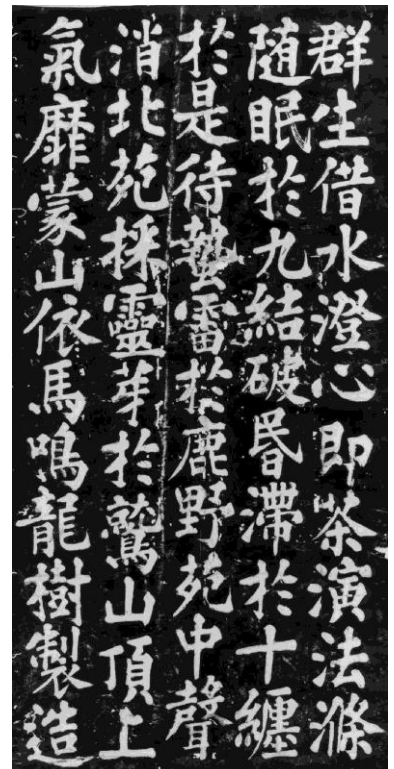 群生借水澄心即茶演法滌
随眠於九結破昬滯於十纏
於是待蟄雷於鹿野苑中聲
消北苑採靈芽於鷲山頂上
氣靡蒙山依馬鳴龍樹製造